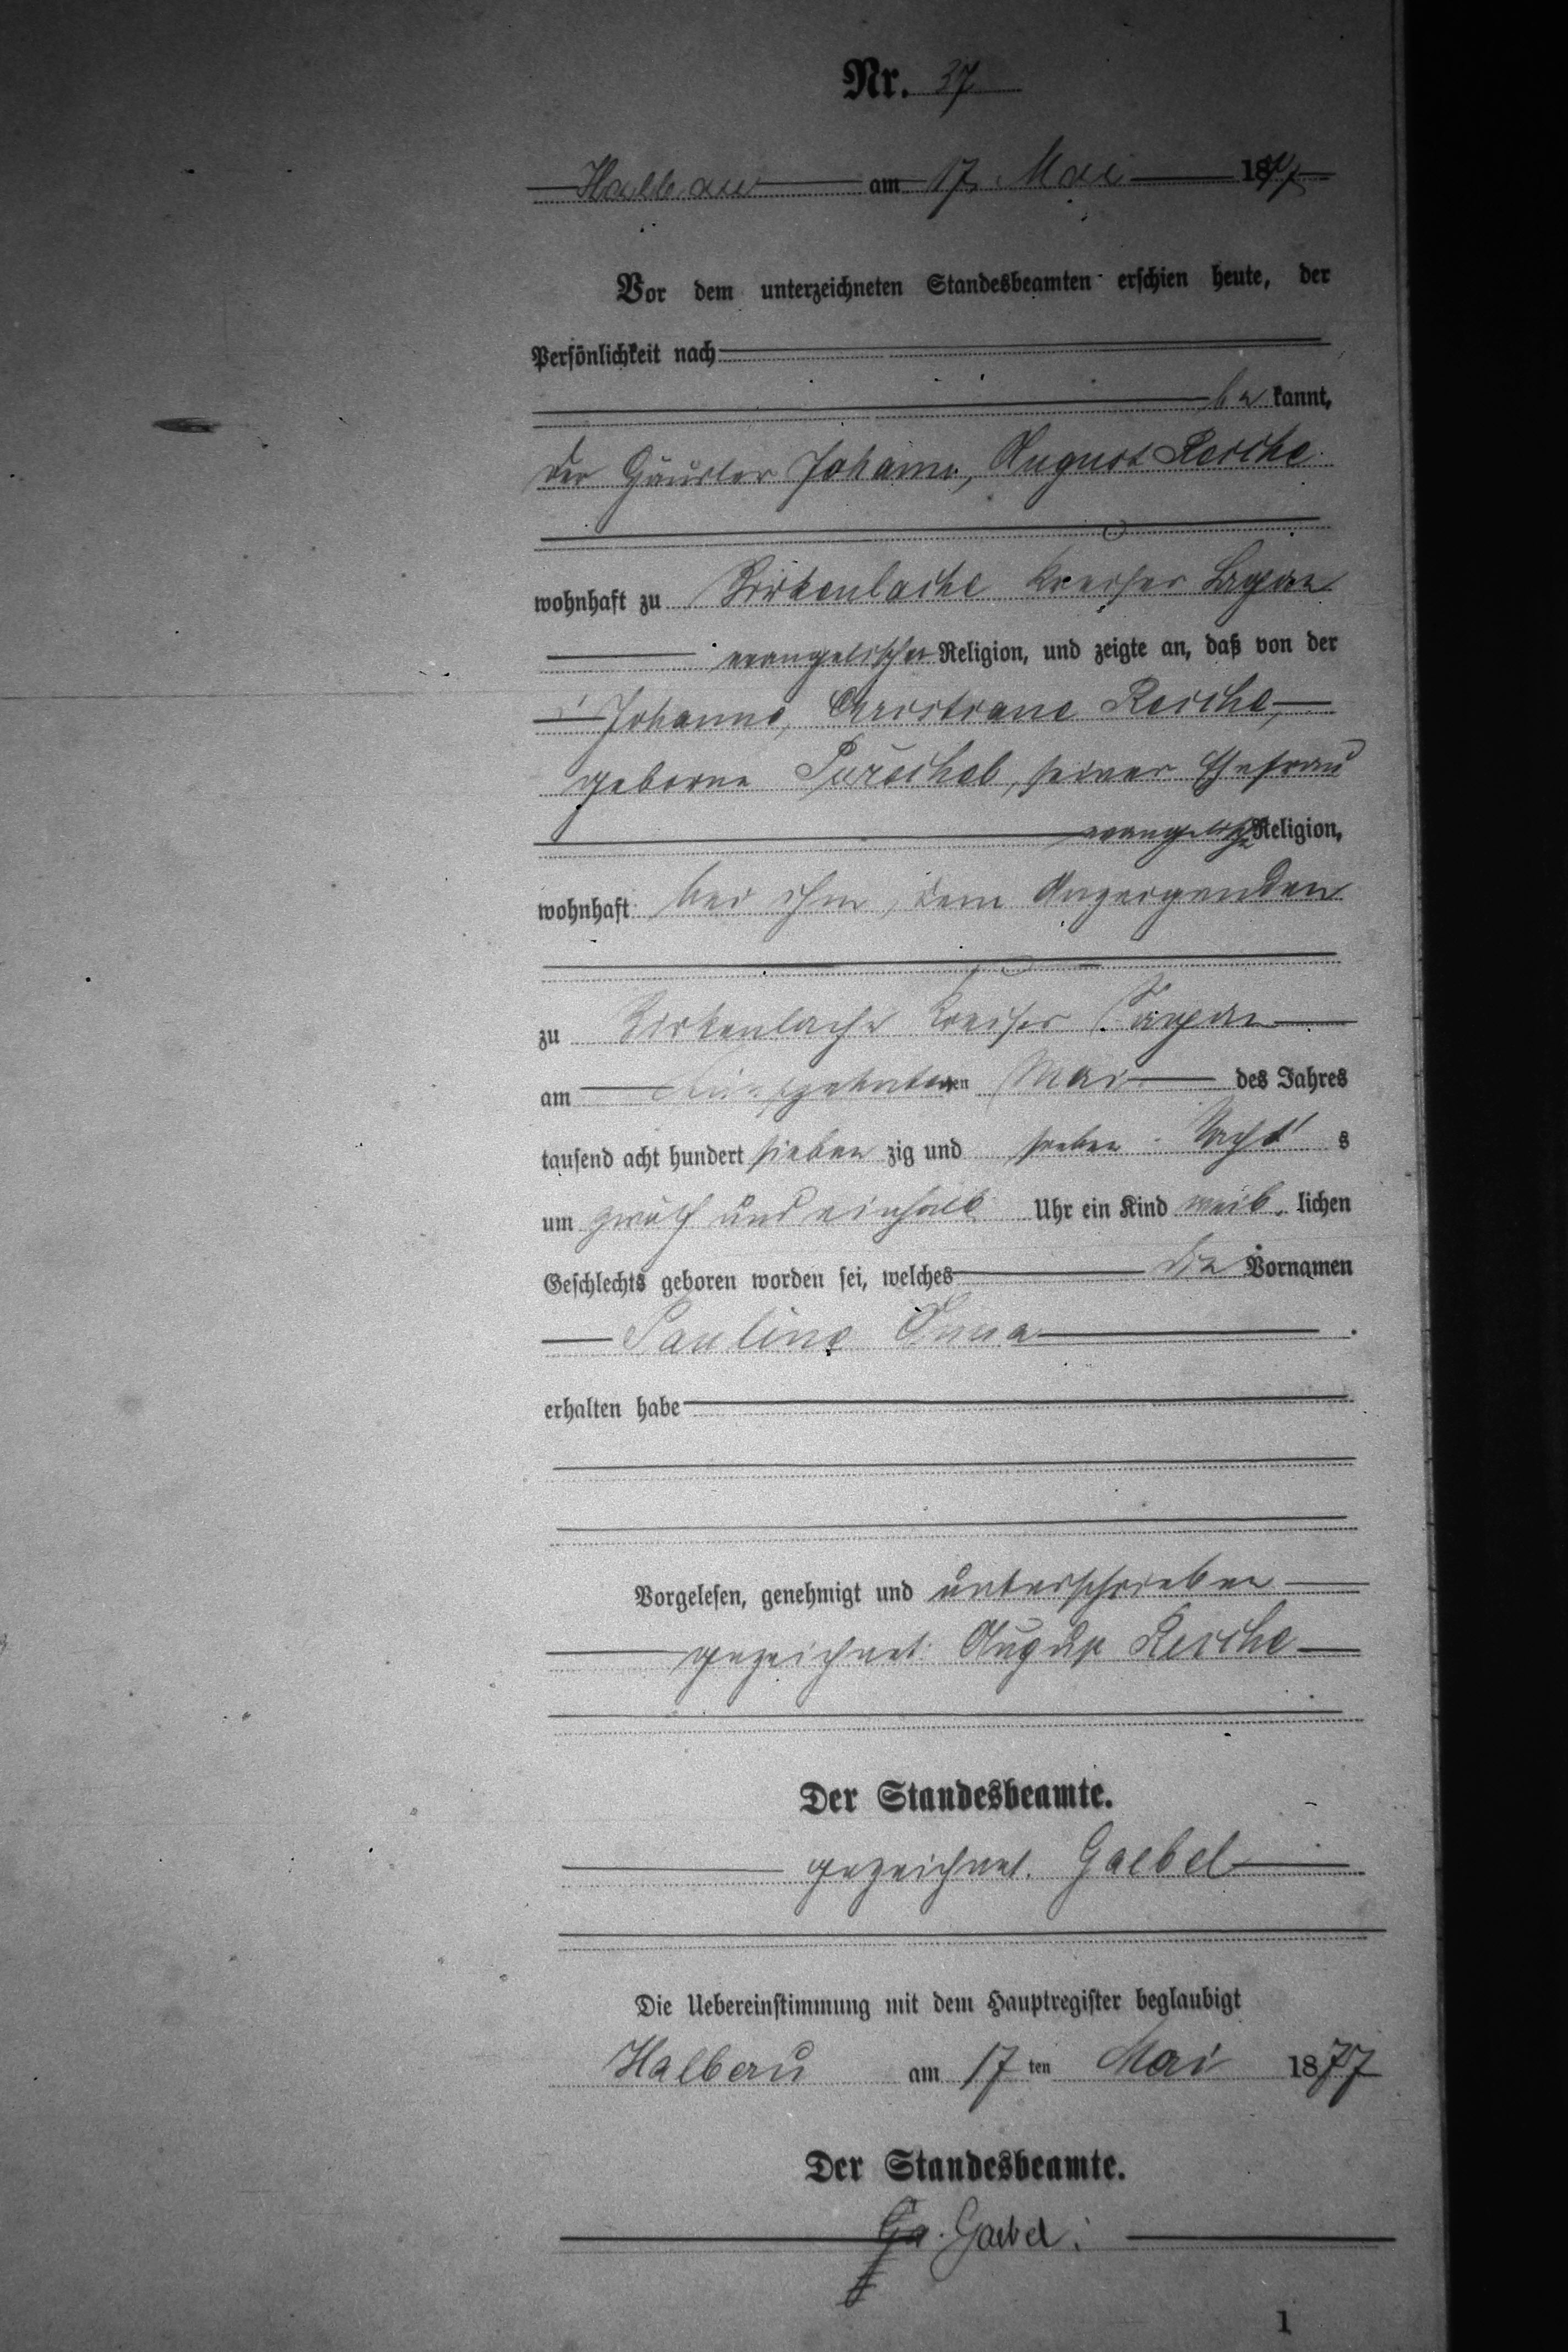 Nr. 37
Halbau am 17. Mai 1877
Vor dem unterzeichneten Standesbeamten erschien heute, der
Persönlichkeit nach
be kannt,
der Häusler Johann, August Resche
wohnhaft zu Birkenlache Kreises Sagan
evangelischer Religion, und zeigte an, daß von der
Johanne, Christiane Resche,
geborne Purschel, seiner Ehefrau
evangelischer Religion,
wohnhaft bei ihm, dem Anzeigenden
zu Birkenlache Kreises Sagan
am fünfzehnten ten Mai des Jahres
tausend acht hundert sieben zig und sieben Nacht s
um zwölf und einhalb Uhr ein Kind weib. lichen
Geschlechts geboren worden sei, welches die Vornamen
Pauline Anna
erhalten habe
Vorgelesen, genehmigt und unterschrieben
gezeichnet. August Resche
Der Standesbeamte.
gezeichnet. Gaebel
Die Uebereinstimmung mit dem Hauptregister beglaubigt
Halbau am 17 ten Mai 1877
Der Standesbeamte.
Gaebel.
1